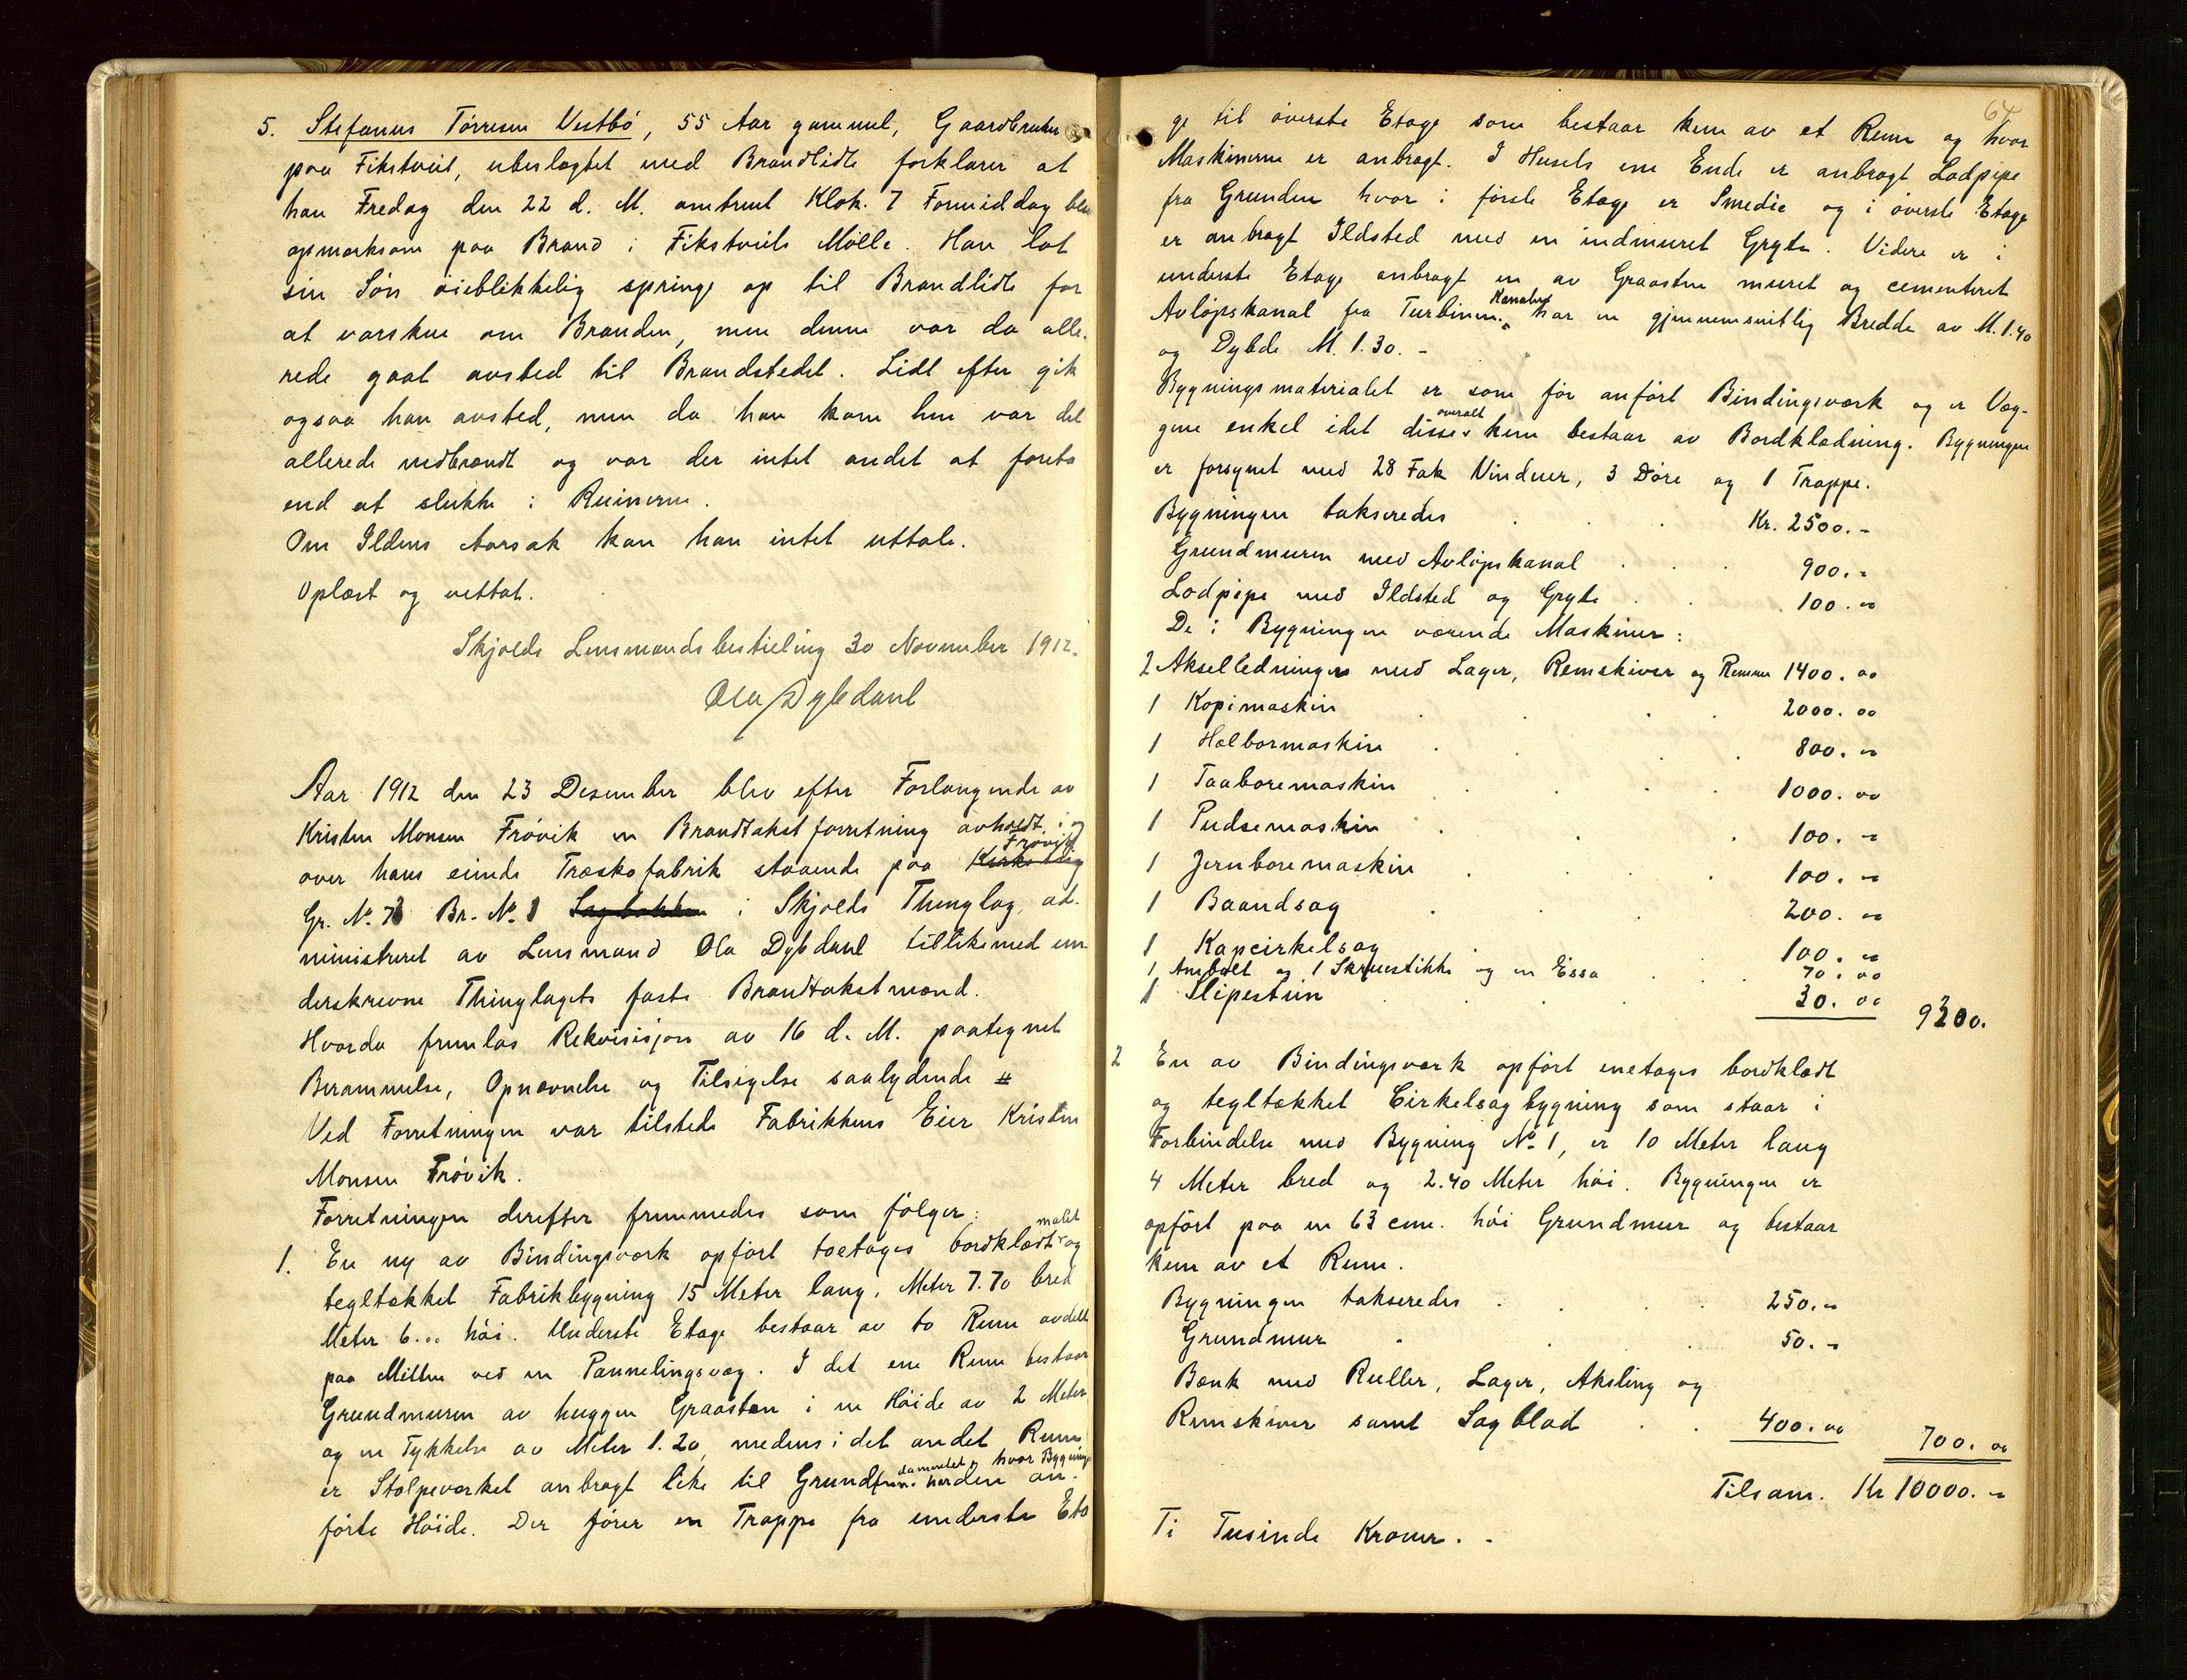 5. Stefanus Tørresen Vestbø, 55 Aar gammel, Gaardbruker
paa Fikstveit, ubeslagtet med Brandlidte forklarer at
han Fredag den 22 d. M. omtrent Klok. 7 Formiddag blev
opmerksom paa Brand i Fikstveits Mølle. Han lot
sin Søn øieblikkelig springe op til Brandlidte for
at varskue om Branden, men denne var da alle-
rede gaat avsted til Brandstedet. Lidt efter gik
ogsaa han avsted, men da han kom hen var det
allerede nedbrændt og var der intet andet at foreta
end at slukke i Ruinerne.
Om Ildens Aarsak kan han intet uttale.
Oplæst og vettat.
Skjolds Lensmandsbestilling 30 November 1912.
Ola Dybdahl
Aar 1912 den 23 Desember blev efter Forlangende av
Kristen Monsen Frøvik en Brandtakstforretning avholdt i og
over hans eiende Træskofabrik staaende paa Frøvik
Gr. No. 73 Br. No. 1 i Skjolds Thinglag, ad-
ministreret av Lensmand Ola Dybdahl tillikemed un
derskrevne Thinglagets faste Brandtakstmænd.
Hvorda fremlas Rekvisisjon av 16 d. M. paategnet
Berammelse, Opnævnelse og Tilsigelse saalydende #
Ved Forretningen var tilstede Fabrikkens Eier Kristen
Monsen Frøvik.
Forretningen derefter fremmedes som følger:
1. En ny av Bindingsværk opført toetages bordklædt malet og
tegltækket Fabrikbygning 15 Meter lang, Meter 7.70 bred
Meter 6... høi. Underste Etage bestaar av to Rum avdelt
paa Midten ved en Pannelingsvæg. I det ene Rum bestaar
Grundmuren av huggen Graasten i en Høide av 2 Meter
og en Tykkelse av Meter 1.20, medens i det andet Rum
er Stolpeverket anbragt like til Grundfundamentet, hvor Bygning har den an-
førte Høide. Der fører en Trappe fra underste Eta
64
ge til øverste Etage som bestaar kun av et Rum og hvor
Maskinerne er anbragt. I Husets ene Ende er anbragt Lodpipe
fra Grunden hvor i første Etage er Smedie og i øverste Etage
er anbragt Ildsted med en indmuret Gryte. Videre er i
underste Etage anbragt en av Graasten muret og cementeret
Avløpskanal fra Turbinen. Kanalen har en gjennemsnitlig Bredde av M. 1.40
og Dybde M. 1.30.-
Bygningsmaterialet er som før anført Bindingsværk og er Væg-
gene enkel idet disse overalt kun bestaar av Bordklædning. Bygningen
er forsynet med 28 Fak Vinduer, 3 Døre og 1 Trappe.
Bygningen takseredes Kr. 2500.-
Grundmuren med Avløpskanal 900.-
Lodpipe med Ildsted og Gryte 100.-
De i Bygningen værende Maskiner:
2 Akselledninger med Lager, Remskiver og Remmer 1400. 00
1 Kopimaskin 2000. 00
1 Hælbormaskin 800. -
1 Taaboremaskin 1000. 00
1 Pudsemaskin 100. -
1 Jernboremaskin 100. -
1 Baandsag 200. -
1 Kapcirkelsag 100. -
1 Ambolt og 1 Skruestikke og en Essa 70. 00
1 Slipestein 30. 00 9300.
2 En av Bindingsværk opført enetages bordklædt
og tegltækket Cirkelsagbygning som staar i
Forbindelse med Bygning No 1, er 10 Meter lang
4 Meter bred og 2.40 Meter høi. Bygningen er
opført paa en 63 cm. høi Grundmur og bestaar
kun av et Rum.
Bygningen takseredes 250.-
Grundmur 50.-
Bænk med Ruller, Lager, Aksling og
Remskiver samt Sagblad 400. 00 700. 00
Tilsam. Kr 10000. -
Ti Tusinde Kroner. -